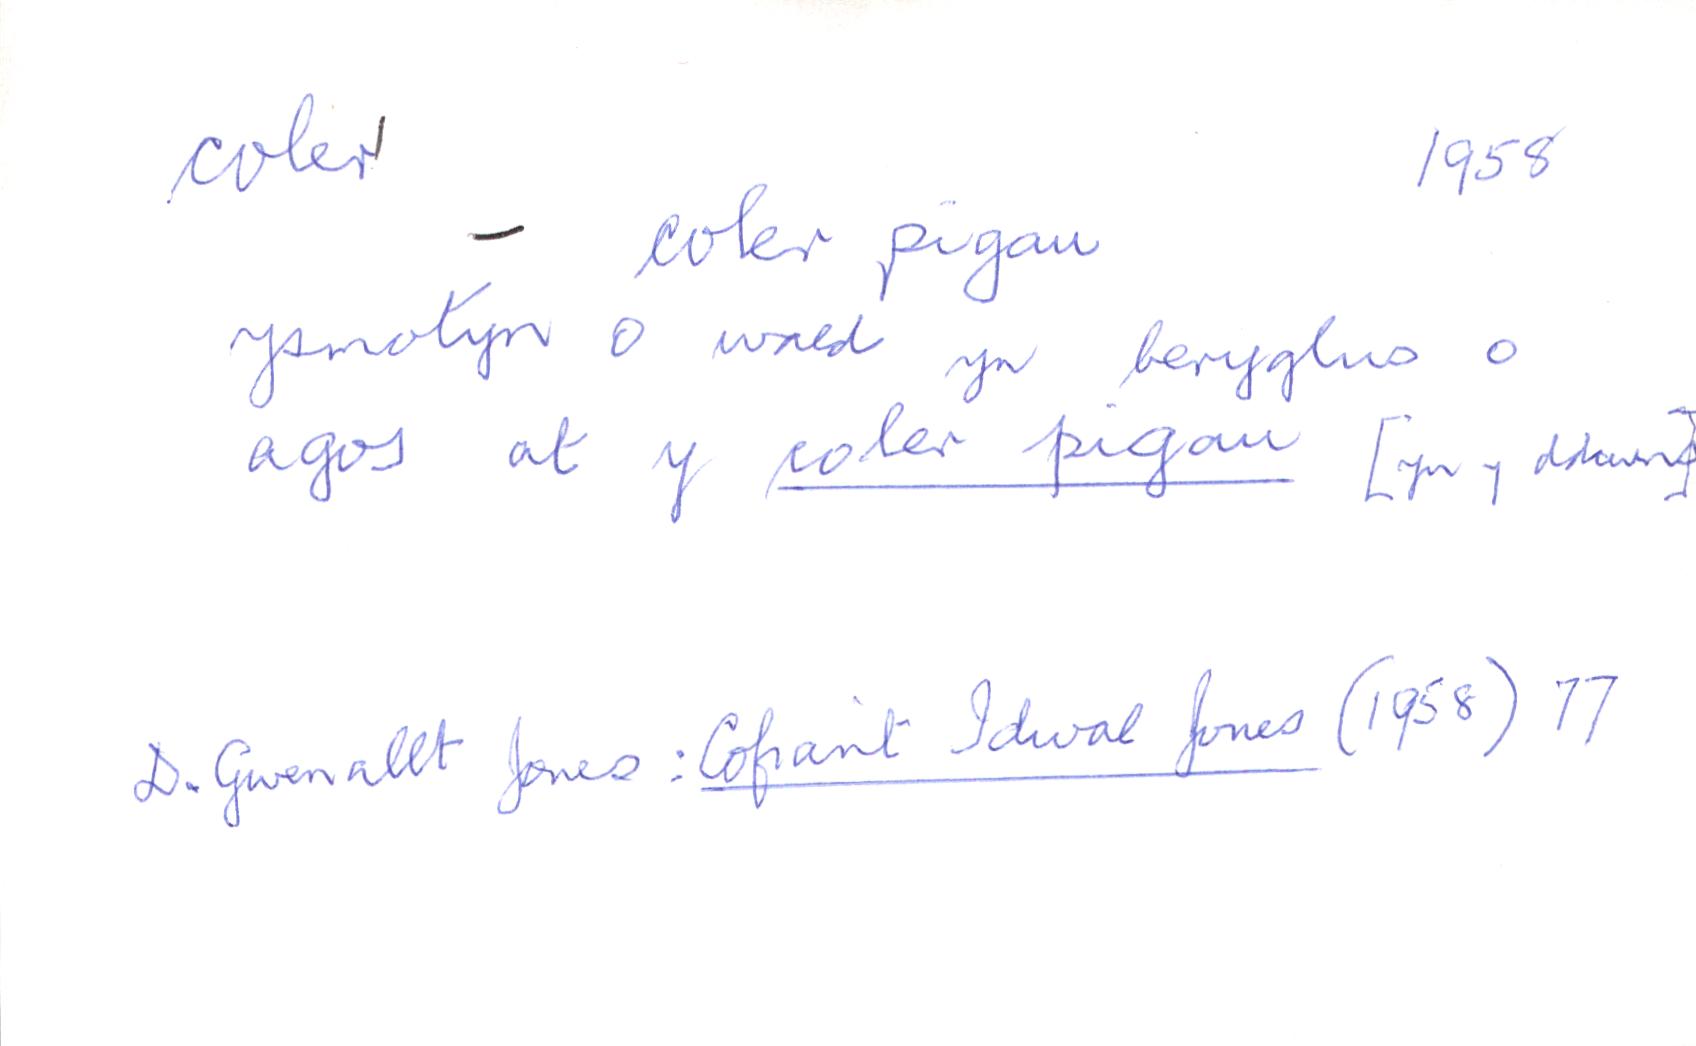 coler 1958
– coler pigau
ysmotyn o waed yn beryglus o
agos at y coler pigau [yn y ddawns]
D. Gwenallt Jones : Cofiant Idwal Jones (1958) 77